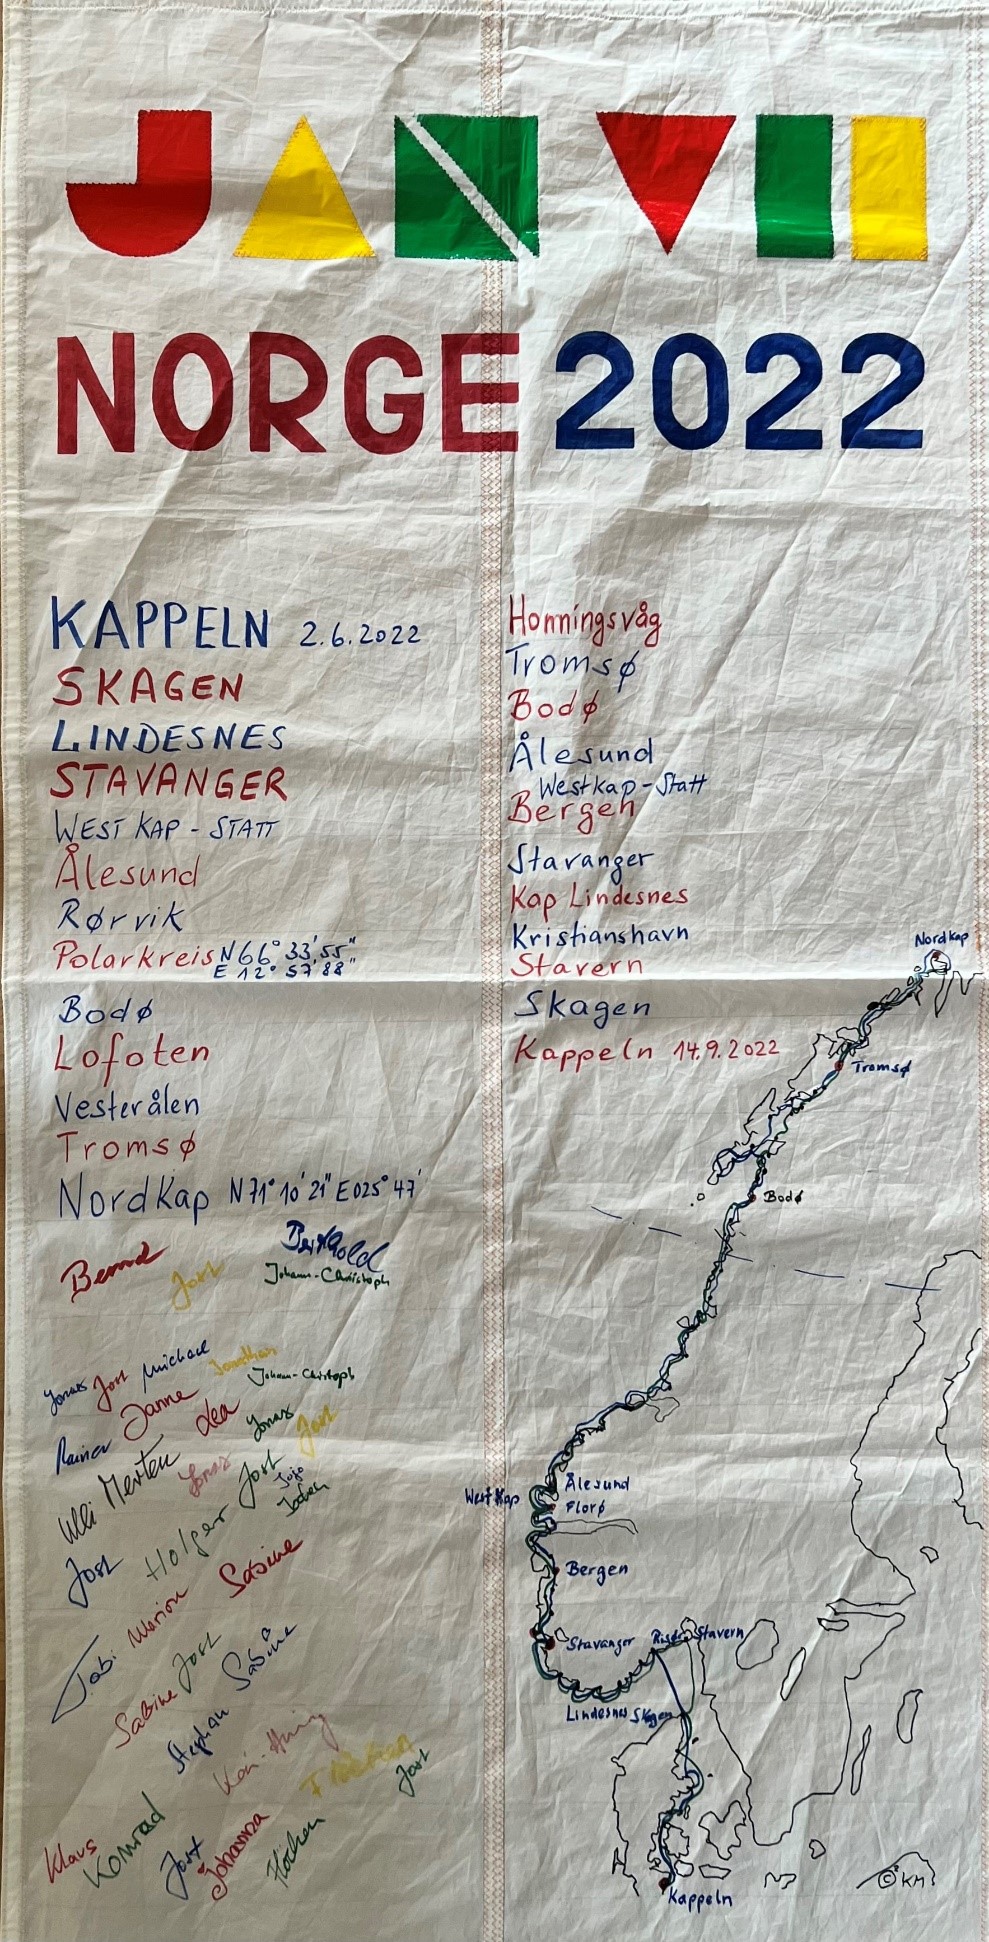 JAN VII
NORGE 2022
KAPPELN 2.6.2022
SKAGEN
LINDESNES
STAVANGER
WEST KAP - STATT
Ålesund
Rørvik
Polarkreis N 66° 33' 55"
E 12° 57' 88"
Bodø
Lofoten
Vesterålen
Tromsø
Nordkap N 71° 10' 21" E 025° 47'
Honningsvåg
Tromsø
Bodø
Ålesund
Westkap-Statt
Bergen
Stavanger
Kap Lindesnes
Kristianshavn
Stavern
Skagen
Kappeln 14.9.2022
Bernd
Jost
Berthold
Johann-Christoph
Jonas
Jost
Michael
Jonathan
Johann-Christoph
Rainer
Janne
Lea
Jonas
Jost
Ulli
Merten
Jonas
Jost
Jojo
Jochen
Jost
Holger
Sabine
Marion
Tobi
Sabine
Jost
Stephan
Sabine
Klaus
Konrad
Jost
Johanna
Jost
Nordkap
Tromsø
Bodø
Ålesund
West Kap
Florø
Bergen
Stavanger
Risør
Stavern
Lindesnes
Skagen
Kappeln
© KM